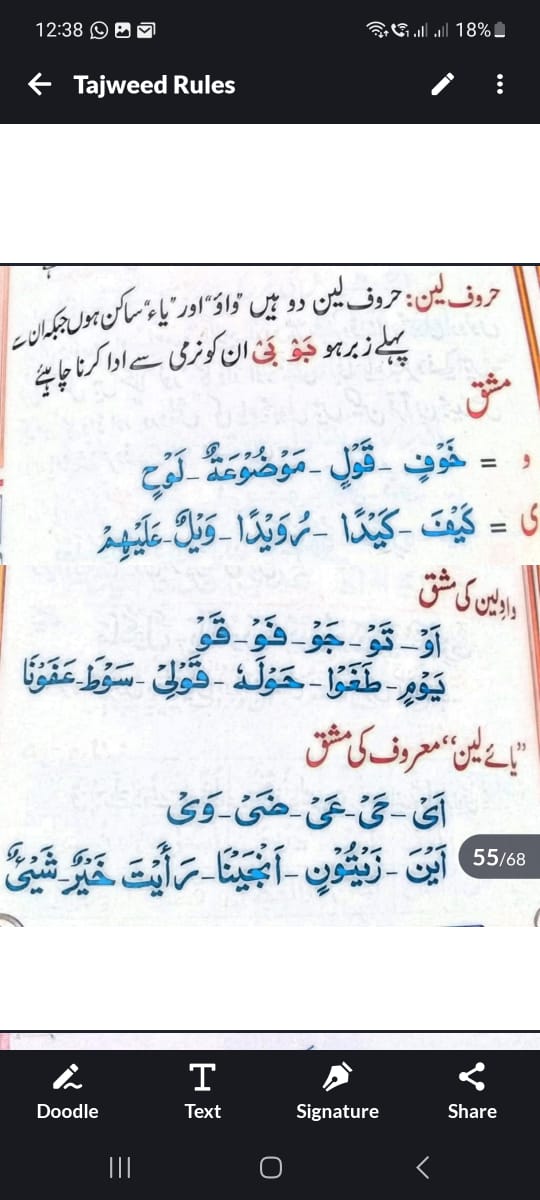 12:38
18%
Tajweed Rules
حروف لین: حروف لین دو ہیں "واؤ" اور "یاء" ساکن ہوں جبکہ ان سے
پہلے زبر ہو جَوْ بَیْ ان کو نرمی سے ادا کرنا چاہیئے
مشق
و = خَوْفٍ - قَوْلٍ - مَوْضُوْعَةٌ - لَوْحٍ
ی = كَيْفَ - كَيْدًا - رُوَيْدًا - وَيْلٌ - عَلَيْهِمْ
واولین کی مشق
اَوْ - تَوْ - جَوْ - فَوْ - قَوْ
يَوْمٍ - طَغَوْا - حَوْلَهٗ - قَوْلِیْ - سَوْطَ - عَفَوْنَا
"یائے لین" معروف کی مشق
اَیْ - حَیْ - عَیْ - ضَیْ - وَیْ
اَيْنَ - زَيْتُوْنٍ - اَنْجَيْنَا - رَأَيْتَ خَيْرٌ - شَيْئٌ
55/68
Doodle
Text
Signature
Share